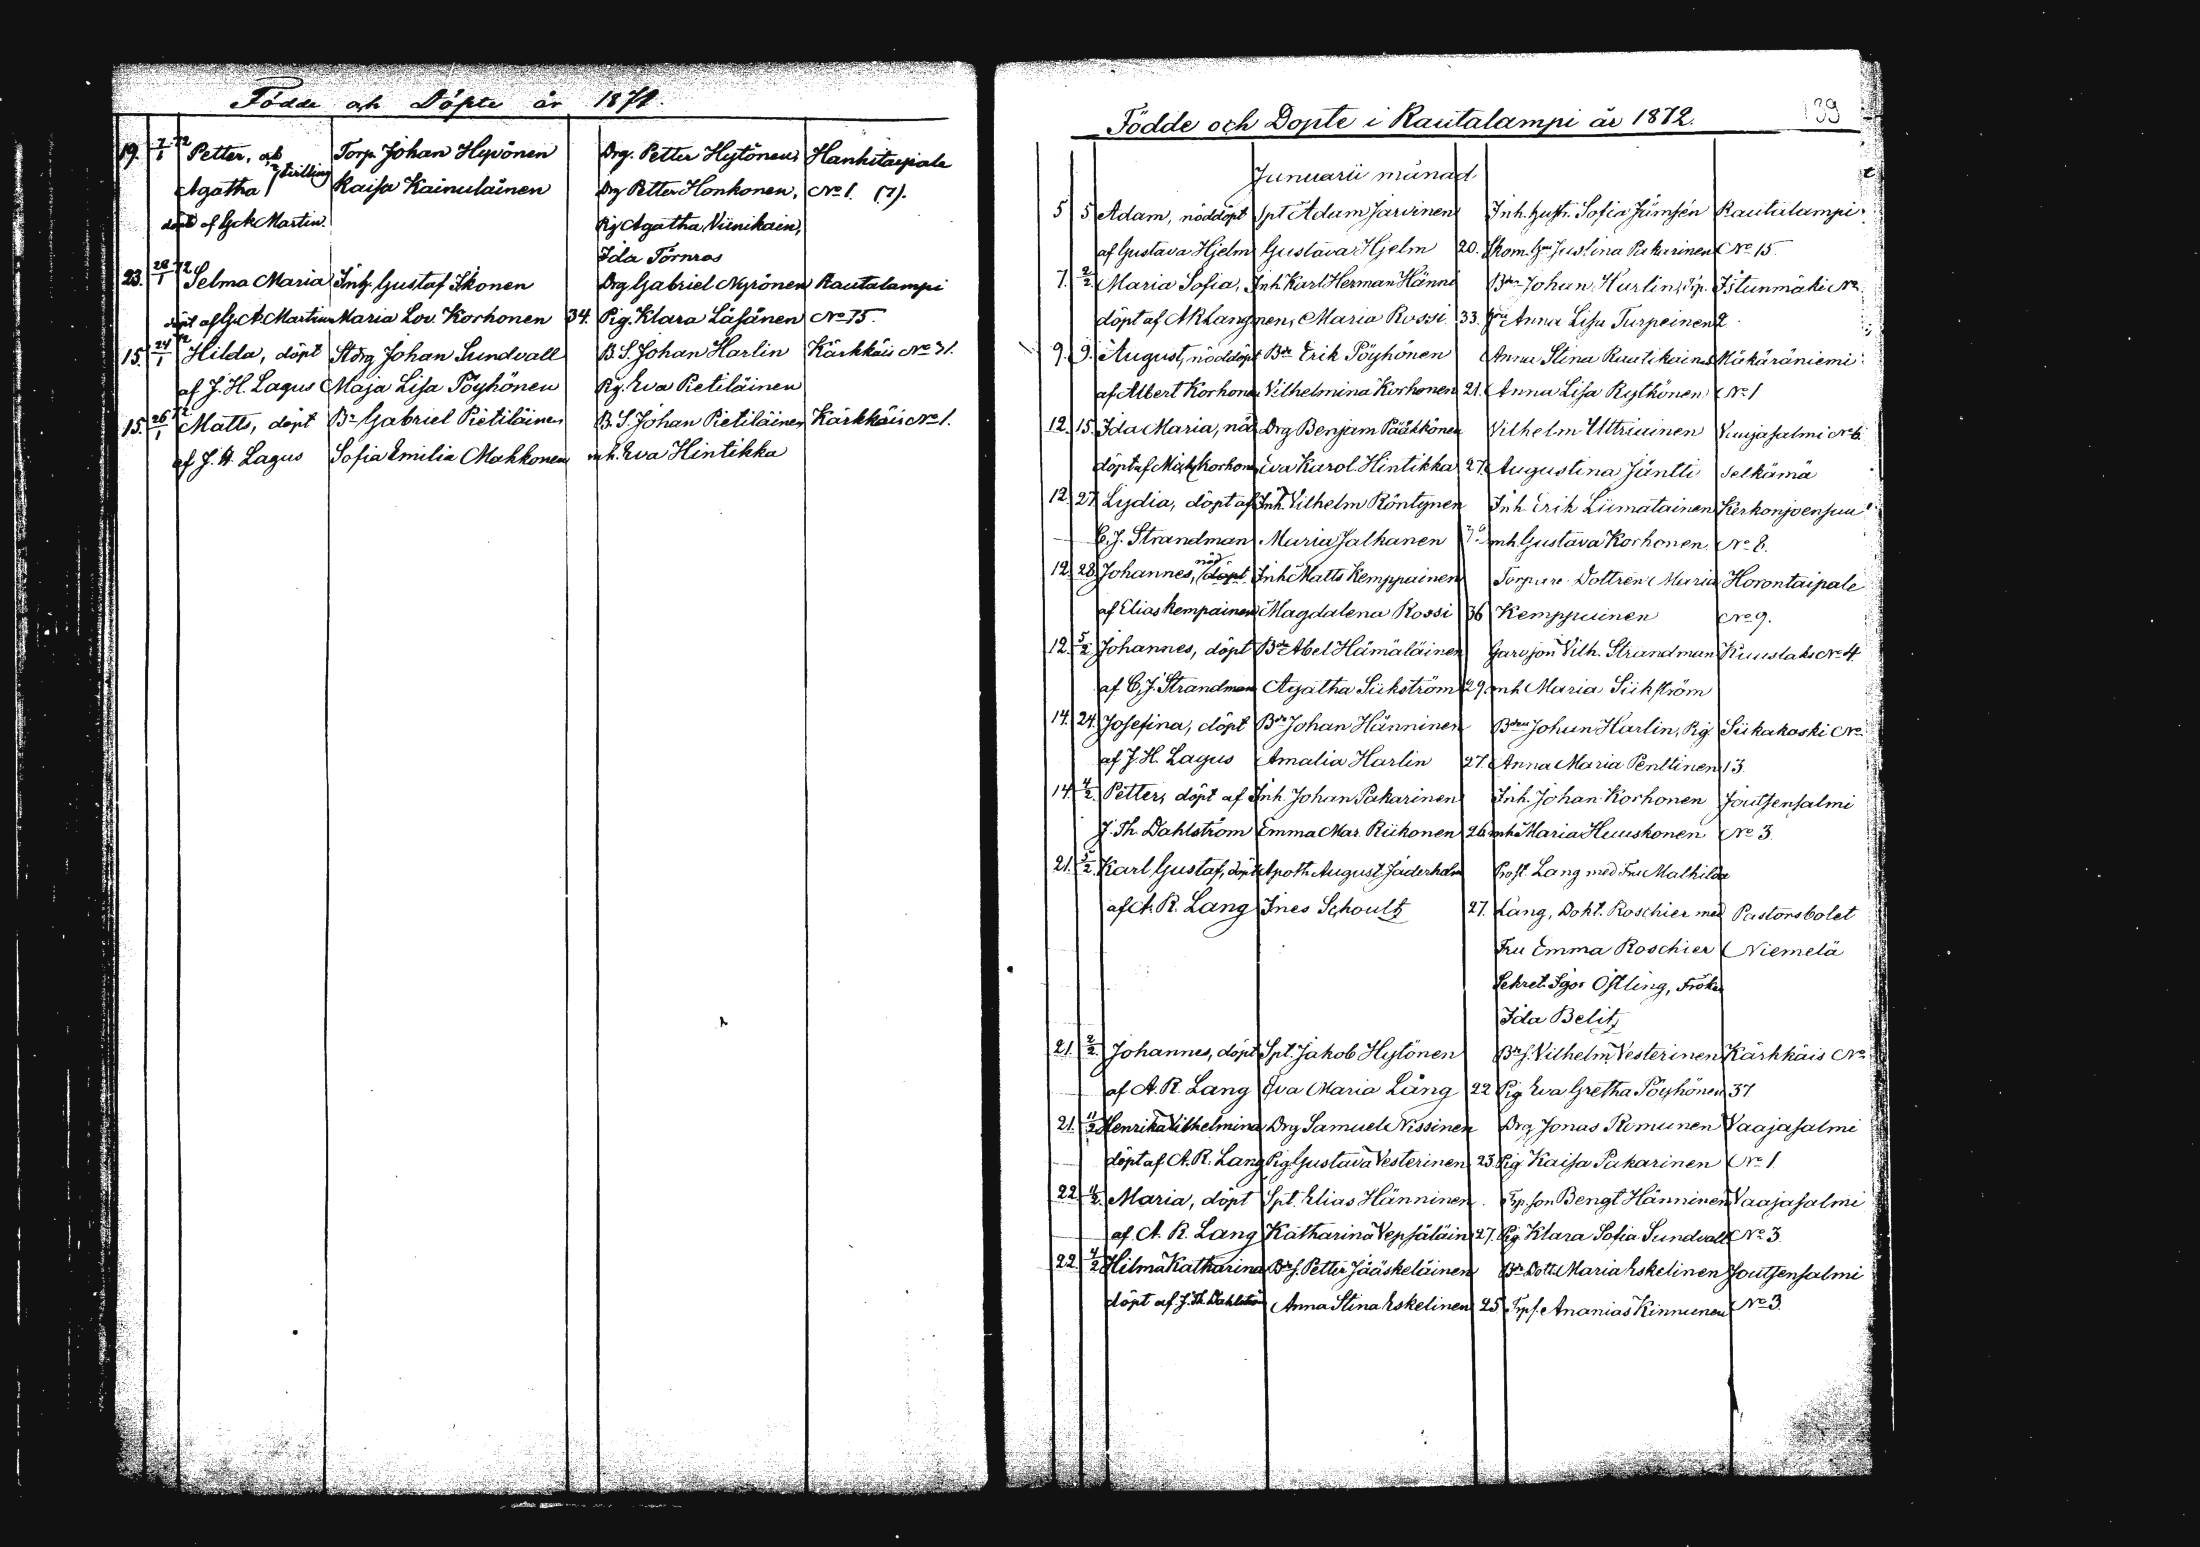 Födde och Döpte år 1871.
19. 7/1 72 Petter, och Torp. Johan Hyvönen Drg. Petter Hytönen, Hankitaipale
Agatha tvilling Kaisa Kainulainen Drg Petter Honkonen, No 1. (7).
döpt af G. A. Martin. Pig Agatha Viinikain,
Ida Törnros
23. 28/1 72 Selma Maria Inh. Gustaf Ikonen Drg Gabriel Nyrönen Rautalampi
döpt af G. A. Martin Maria Lov. Korhonen 34. Pig. Klara Läsänen No 75.
15. 24/1 72 Hilda, döpt St.drg Johan Sundvall B. S. Johan Harlin Kärkkäis No 31.
af J. H. Lagus Maja Lisa Pöyhönen Pig. Eva Pietiläinen
15. 26/1 72 Matts, döpt Br Gabriel Pietiläinen B. S. Johan Pietiläinen Kärkkäis No 1.
af J. H. Lagus Sofia Emilia Makkonen m.h. Eva Hintikka
139
Födde och Döpte i Rautalampi år 1872.
Januarii månad
5 5 Adam, nöddöpt Spt Adam Jarvinen Inh. hustr. Sofia Jämsén Rautalampi
af Gustava Hjelm Gustava Hjelm 20. Skom. Justina Pakarinen No 15
7. 2/2 Maria Sofia, Inh Karl Herman Hänni Johan Harlin, Istunmäki No
döpt af A R Lang nen, Maria Rossi 33. Anna Lisa Turpeinen 2
9. 9. August, nöddöpt Bdr Erik Pöyhönen Anna Stina Rautikainen Mäkäräniemi
af Albert Korhonen Vilhelmina Korhonen 21. Anna Lisa Rytkönen No 1
12. 15. Ida Maria, nöd Drg Benjam Pääkkönen Vilhelm Uttriainen Vaajasalmi No 6
döpt af Korhonen Eva Karol. Hintikka 27. Augustina Jäntti Selkämä
12. 27. Lydia, döpt af Inh. Vilhelm Röntynen Inh. Erik Liimatainen Kerkonjoensuu
C. J. Strandman Maria Jalkanen mh. Gustava Korhonen No 8.
12. 28. Johannes, nöddöpt Inh. Matts Kemppainen Torpare Dottren Maria Horontaipale
af Elias Kempainen Magdalena Rossi 36 Kemppainen No 9.
12. 5/2 Johannes, döpt Bdr Abel Hämäläinen Vilh. Strandman Kuuslaks No 4.
af C. J. Strandman Agatha Siikström 29. mh Maria Siikström
14. 24. Josefina, döpt Bdr Johan Hänninen Johan Harlin, Pig. Siikakoski No
af J. H. Lagus Amalia Harlin 27. Anna Maria Penttinen 13.
14. 4/2 Petter, döpt af Inh. Johan Pakarinen Inh. Johan Korhonen Joutsensalmi
J. Th. Dahlström Emma Mar. Riikonen 26. mh Maria Huuskonen No 3.
21. 5/2 Karl Gustaf, döpt Apoth. August Jäderholm Prost. Lang med Fru Mathilda
af A. R. Lang Ines Schoultz 27. Lang, Dokt. Roschier med Pastorsbolet
Fru Emma Roschier Niemelä
Sekret. Igor Östling, Fröken
Ida Belitz
21. 2/2 Johannes, döpt Spt. Jakob Hytönen Bdr S. Vilhelm Vesterinen Kärkkäis No
af A. R. Lang Eva Maria Lång 22 Pig Eva Gretha Pöyhönen 37
21. 11/2 Henrika Vilhelmina Drg Samuel Nissinen Drg Jonas Romunen Vaajasalmi
döpt af A. R. Lang Pig. Gustava Vesterinen 23 Pig Kaisa Pakarinen No 1.
22. 11/2 Maria, döpt Spt. Elias Hänninen Trp. son Bengt Hänninen Vaajasalmi
af. A. R. Lang Katharina Vepsäläin 27. Pig Klara Sofia Sundvall No 3.
22. 4/2 Hilma Katharina Bdr S. Petter Jääskeläinen Br Dott. Maria Eskelinen Joutsensalmi
döpt af J. Th. Dahlström Anna Stina Eskelinen 25 Trp. s. Ananias Kinnunen No 3.